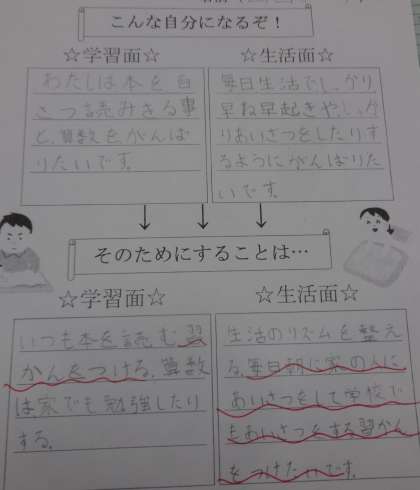 こんな自分になるぞ！
☆学習面☆
わたしは本を百
さつ読みきる事
と、算数をがんば
りたいです。
☆生活面☆
毎日生活でしっかり
早ね早起きやしっか
りあいさつをしたりす
るようにがんばりた
いです。
そのためにすることは…
☆学習面☆
いつも本を読む習
かんをつける。算数
は家でも勉強したり
する。
☆生活面☆
生活のリズムを整え
る。毎日朝に家の人に
あいさつをして学校で
もあいさつをする習かん
をつけたいです。